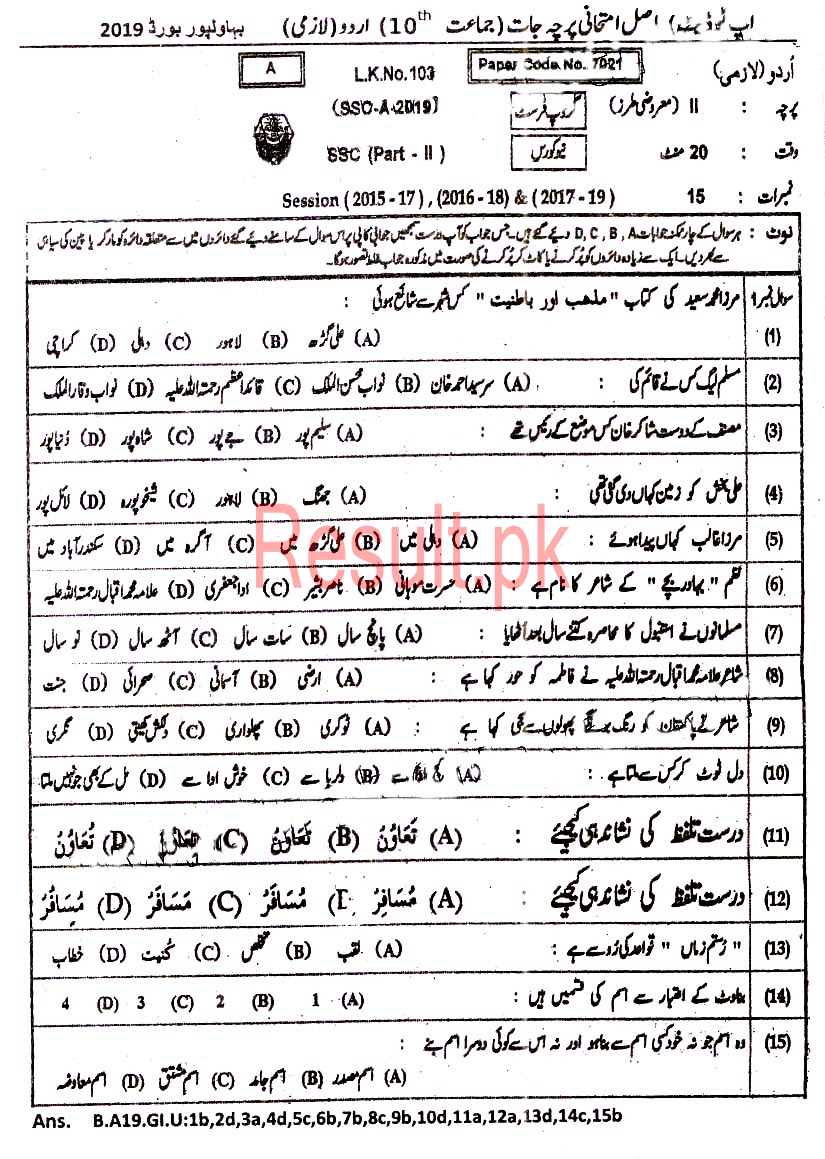 اپ ٹو ڈیٹ) اصل امتحانی پرچہ جات (جماعت 10th) اردو (لازمی) بہاولپور بورڈ 2019
اُردو (لازمی) Paper Code No. 7021 L.K.No.103 A
پرچہ : II (معروضی طرز) گروپ فرسٹ (SSC-A-2019)
وقت : 20 منٹ نیو کورس SSC (Part - II)
نمبرات : 15 Session (2015-17), (2016-18) & (2017-19)
نوٹ : ہر سوال کے چار ممکنہ جوابات D, C, B, A دئیے گئے ہیں۔ جس جواب کو آپ درست سمجھیں جوابی کاپی پر اس سوال کے سامنے دئیے گئے دائروں میں سے متعلقہ دائرہ کو مارکر یا پین کی سیاہی
سے بھر دیں۔ ایک سے زیادہ دائروں کو پُر کرنے یا کاٹ کر پُر کرنے کی صورت میں مذکورہ جواب غلط تصور ہوگا۔
سوال نمبر1 مرزا محمد سعید کی کتاب "مذہب اور باطنیت" کس شہر سے شائع ہوئی :
(1) (A) علی گڑھ (B) لاہور (C) دہلی (D) کراچی
(2) مسلم لیگ کس نے قائم کی : (A) سرسید احمد خان (B) نواب محسن الملک (C) قائداعظم رحمتہ اللہ علیہ (D) نواب وقار الملک
(3) مصنف کے دوست شاکر خان کس موضع کے رئیس تھے : (A) سلیم پور (B) جے پور (C) شاہ پور (D) دُنیا پور
(4) علی بخش کو زمین کہاں دی گئی تھی (A) جھنگ (B) لاہور (C) شیخوپورہ (D) لائل پور
(5) مرزا غالب کہاں پیدا ہوئے : (A) دہلی میں (B) علی گڑھ میں (C) آگرہ میں (D) سکندر آباد میں
(6) نظم " پہاوریچے " کے شاعر کا نام ہے : (A) حسرت موہانی (B) ناصر بشیر (C) ادا جعفری (D) علامہ محمد اقبال رحمتہ اللہ علیہ
(7) مسلمانوں نے استنبول کا محاصرہ کتنے سال بعد اُٹھایا : (A) پانچ سال (B) سات سال (C) آٹھ سال (D) نو سال
(8) شاعر علامہ محمد اقبال رحمتہ اللہ علیہ نے فاطمہ کو حور کہا ہے : (A) ارضی (B) آسمانی (C) صحرائی (D) جنت
(9) شاعر نے پاکستان کو رنگ برنگے پھولوں سے سجی کہا ہے : (A) ٹوکری (B) پھلواری (C) دلکش کھیتی (D) نگری
(10) دل ٹوٹ کر کس سے ملتا ہے : (A) سے (B) دلربا سے (C) خوش ادا سے (D) مل کے بھی جو نہیں ملتا
(11) درست تلفظ کی نشاندہی کیجیئے : (A) تَعَاوُنُ (B) تَعَاوَنُ (C) (D) تُعَاوُنُ
(12) درست تلفظ کی نشاندہی کیجیئے : (A) مُسَافِرُ (B) مُسَافَرُ (C) مَسَافَرُ (D) مُسَافُرُ
(13) " رُستم زماں " قواعد کی رُو سے ہے : (A) لقب (B) تخلص (C) کُنیت (D) خطاب
(14) بناوٹ کے اعتبار سے اسم کی قسمیں ہیں : (A) 1 (B) 2 (C) 3 (D) 4
(15) وہ اسم جو نہ خود کسی اسم سے بنا ہو اور نہ اس سے کوئی دوسرا اسم بنے :
(A) اسم مصدر (B) اسم جامد (C) اسم مشتق (D) اسم معاوضہ
Ans. B.A19.GI.U:1b,2d,3a,4d,5c,6b,7b,8c,9b,10d,11a,12a,13d,14c,15b
Result.pk